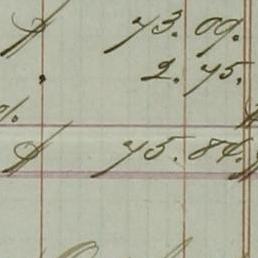 $ 73. 09.
" 2. 75.
%.
$ 75. 84.